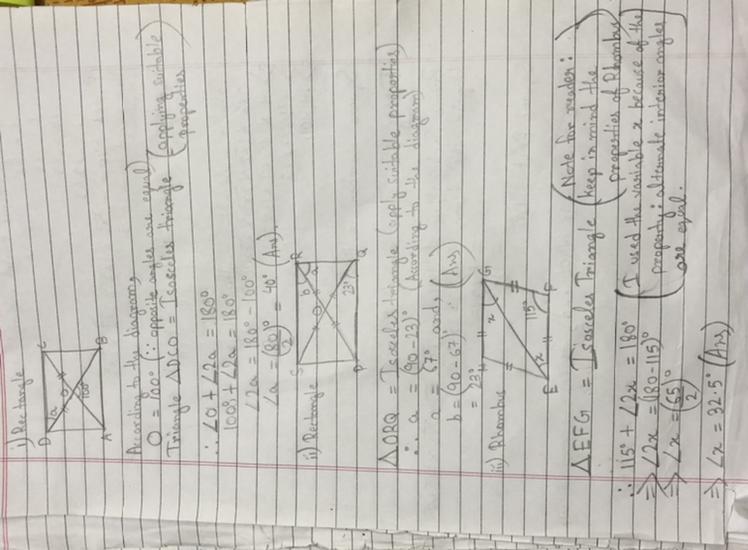 i) Rectangle
D
C
a
O
100°
A
B
According to the diagram,
O = 100° (∵ opposite angles are equal)
Triangle △DCO = Isosceles triangle (applying suitable properties)
∴ ∠O + ∠2a = 180°
100° + ∠2a = 180°
∠2a = 180° - 100°
∠a = (80/2)° = 40° (Ans).
ii) Rectangle
S
R
b
a
O
23°
P
Q
△ORQ = Isosceles triangle (apply suitable properties)
∴ a = (90-23)° (According to the diagram)
a = 67° and,
b = (90-67)°
= 23° (Ans)
iii) Rhombus
H
G
x
x
115°
E
F
△EFG = Isosceles Triangle (Note for reader: keep in mind the properties of Rhombus)
∴ 115° + ∠2x = 180° (I used the variable x because of the
⇒ ∠2x = (180-115)° property: alternate interior angles
⇒ ∠x = (65/2)° are equal.)
⇒ ∠x = 32.5° (Ans)